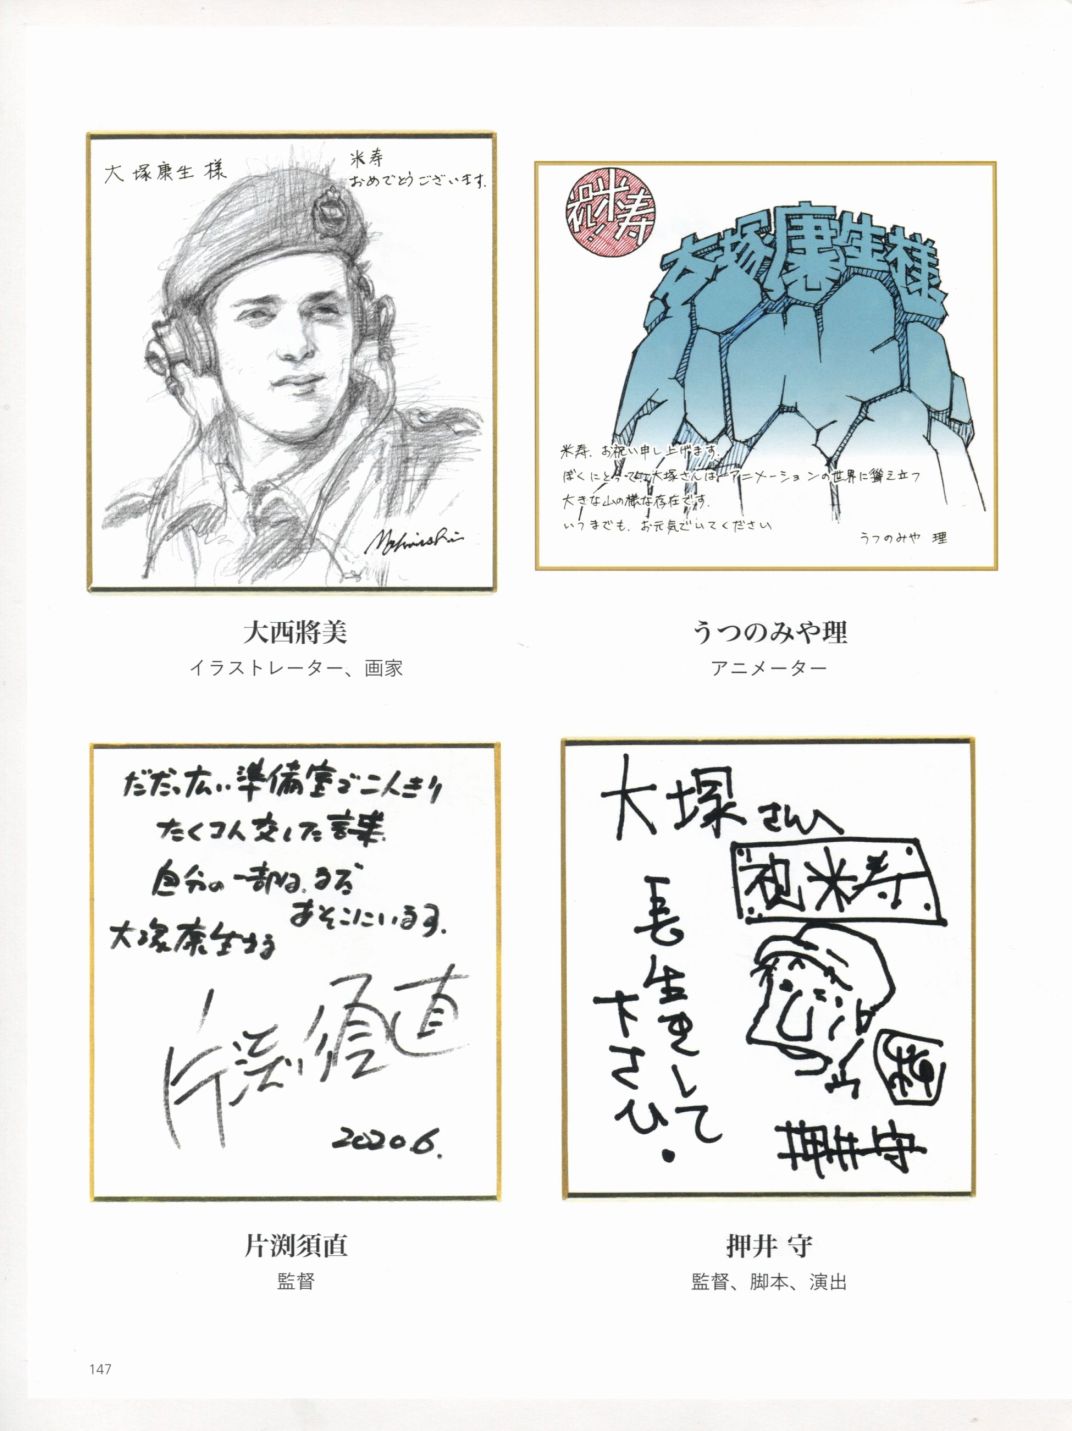 大塚康生 様
米寿
おめでとうございます。
大西將美
イラストレーター、画家
祝!米寿
大塚康生様
米寿、お祝い申し上げます。
ぼくにとって、大塚さんは、アニメーションの世界に聳え立つ
大きな山の様な存在です。
いつまでも、お元気でいてください
うつのみや 理
うつのみや理
アニメーター
だだっ広い準備室で二人きり
たくさん交した言葉。
自分の一部は、まだ
あそこにいます。
大塚康生さま
片渕須直
2020.6.
片渕須直
監督
大塚さん
祝米寿
長生きして
下さひ。
押井守
押井 守
監督、脚本、演出
147